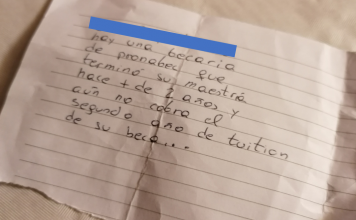 hay una becaria
de pronabec que
terminó su maestría
hace + de 2 años y
aún no cobra el
segundo año de tuition
de su beca...